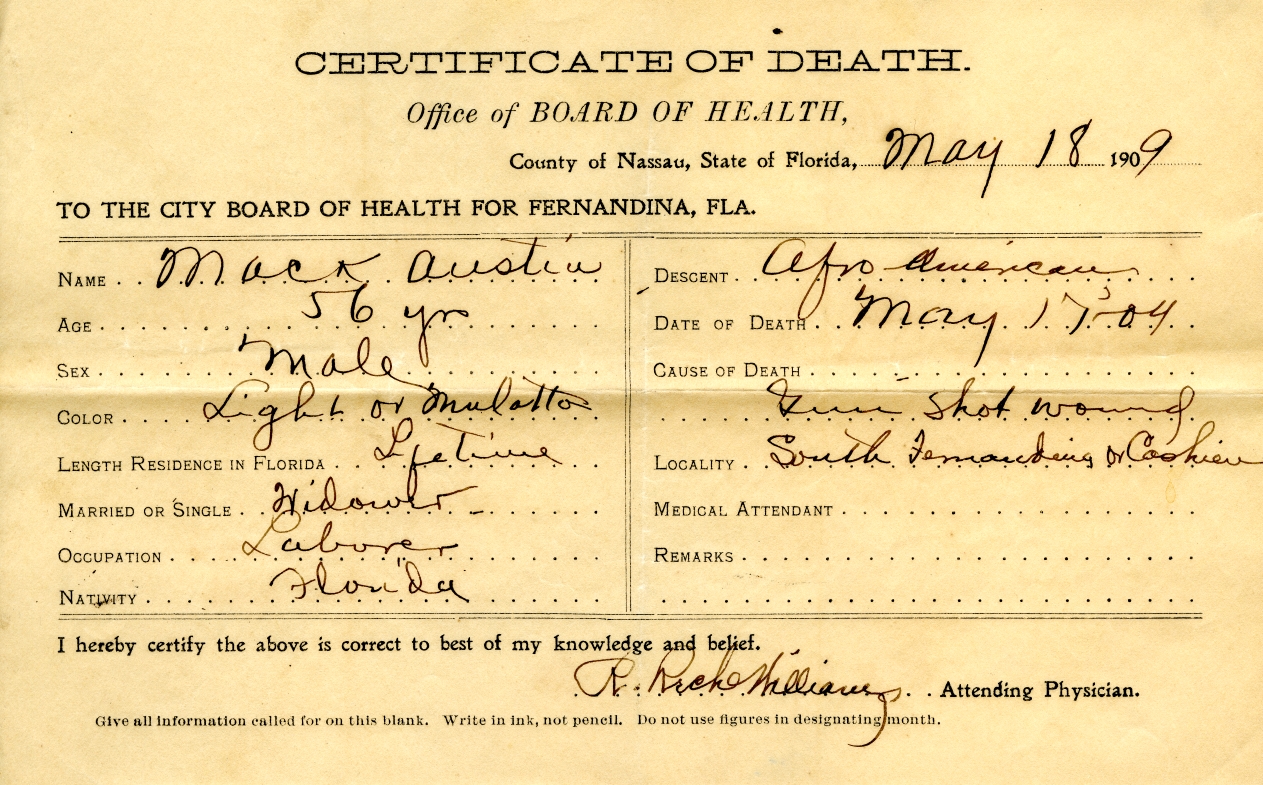 CERTIFICATE OF DEATH.
Office of BOARD OF HEALTH,
County of Nassau, State of Florida, May 18 1909
TO THE CITY BOARD OF HEALTH FOR FERNANDINA, FLA.
NAME . . Mack Austin
AGE . . . 56 yrs
SEX . . . Male
COLOR . . . Light or Mulatto
LENGTH RESIDENCE IN FLORIDA . . Lifetime
MARRIED OR SINGLE . . Widower
OCCUPATION . . . Laborer
NATIVITY . . . Florida
DESCENT . . Afro American
DATE OF DEATH . . May 17
CAUSE OF DEATH . . .
Gun shot wound
LOCALITY . . South Fernandina or
MEDICAL ATTENDANT . . .
REMARKS . . .
I hereby certify the above is correct to best of my knowledge and belief.
R. Williams . . Attending Physician.
Give all information called for on this blank. Write in ink, not pencil. Do not use figures in designating month.